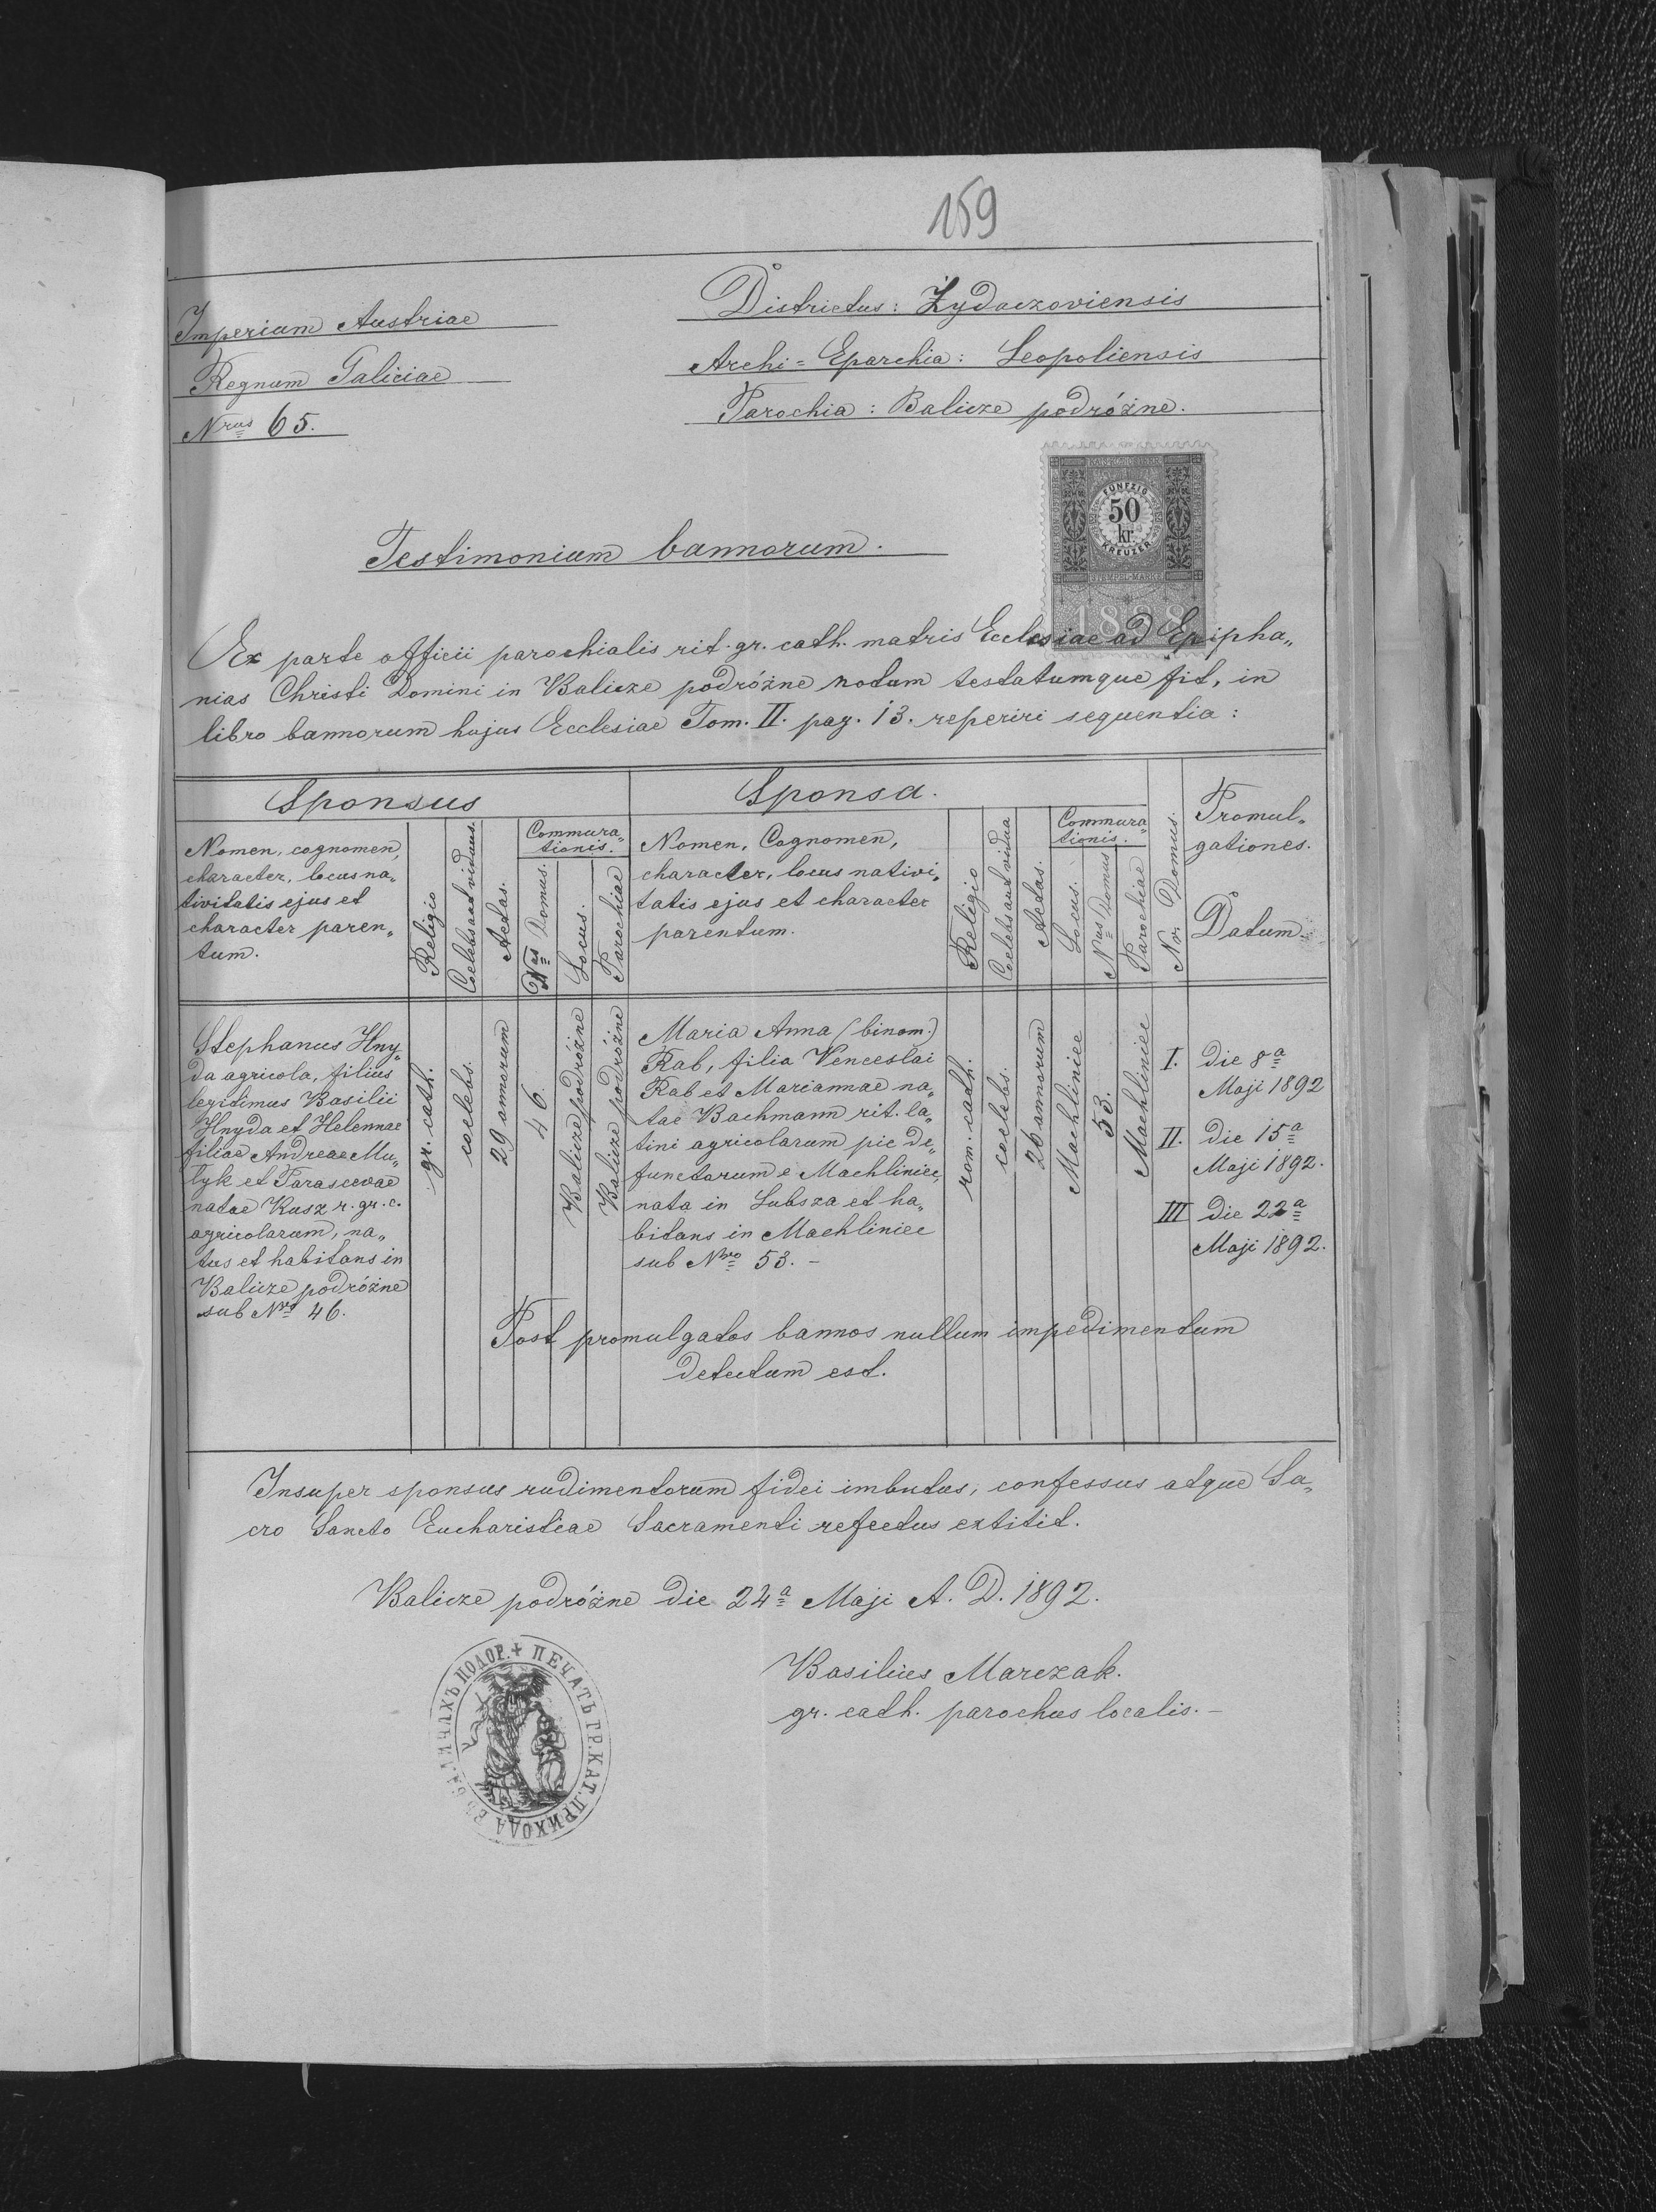 159
Imperium Austriae
Regnum Galiciae
Nrus 65.
Districtus: Żydaczoviensis
Archi=Eparchia: Leopoliensis
Parochia: Balicze podróżne.
FÜNFZIG
50
kr.
KREUZER
STEMPEL-MARKE
1888
Testimonium bannorum.
Ex parte officii parochialis rit. gr. cath. matris Ecclesiae ad Epipha„
nias Christi Domini in Balicze podróżne notum testatumque fit, in
libro bannorum hujus Ecclesiae Tom. II. pag. 13. reperiri sequentia:
Sponsus
Nomen, cognomen,
character, locus na„
tivitatis ejus et
character paren„
tum.
Religio
Coelebs aut viduus.
Aetas.
Commora„
tionis.
Nus Domus.
Locus.
Parochiae
Sponsa.
Nomen, Cognomen,
character, locus nativi„
tatis ejus et character
parentum.
Religio
Coelebs aut vidua
Aetas.
Commora„
tionis.
Locus.
Nus Domus
Parochiae
Nr. Domus.
Promul„
gationes.
Datum.
Stephanus Hny„
da agricola, filius
legitimus Basilii
Hnyda et Helennae
filiae Andreae Mu„
lyk et Parascevae
natae Kusz r. gr. c.
agricolarum, na„
tus et habitans in
Balicze podróżne
sub Nro 46.
gr. cath.
coelebs.
29 annorum
46.
Balicze podróżne
Balicze podróżne
Maria Anna (binom.)
Rab, filia Venceslai
Rab et Mariannae na„
tae Bachmann rit. la„
tini agricolarum pie de„
functorum e Machliniec,
nata in Lubsza et ha„
bitans in Machliniec
sub Nro 53. -
rom. cath.
coelebs.
26 annorum
Machliniec
53.
Machliniec
I. die 8a
Maji 1892
II. die 15a
Maji 1892.
III die 22a
Maji 1892.
Post promulgatos bannos nullum impedimentum
detectum est.
Insuper sponsus rudimentorum fidei imbutus, confessus atque Sa„
cro Sancto Eucharistiae Sacramenti refectus extitit.
Balicze podróżne die 24a Maji A. D. 1892.
Basilius Marczak.
gr. cath. parochus localis. -
ПЕЧАТЬ ГР. КАТ. ПРИХОДА ПОДОР. +